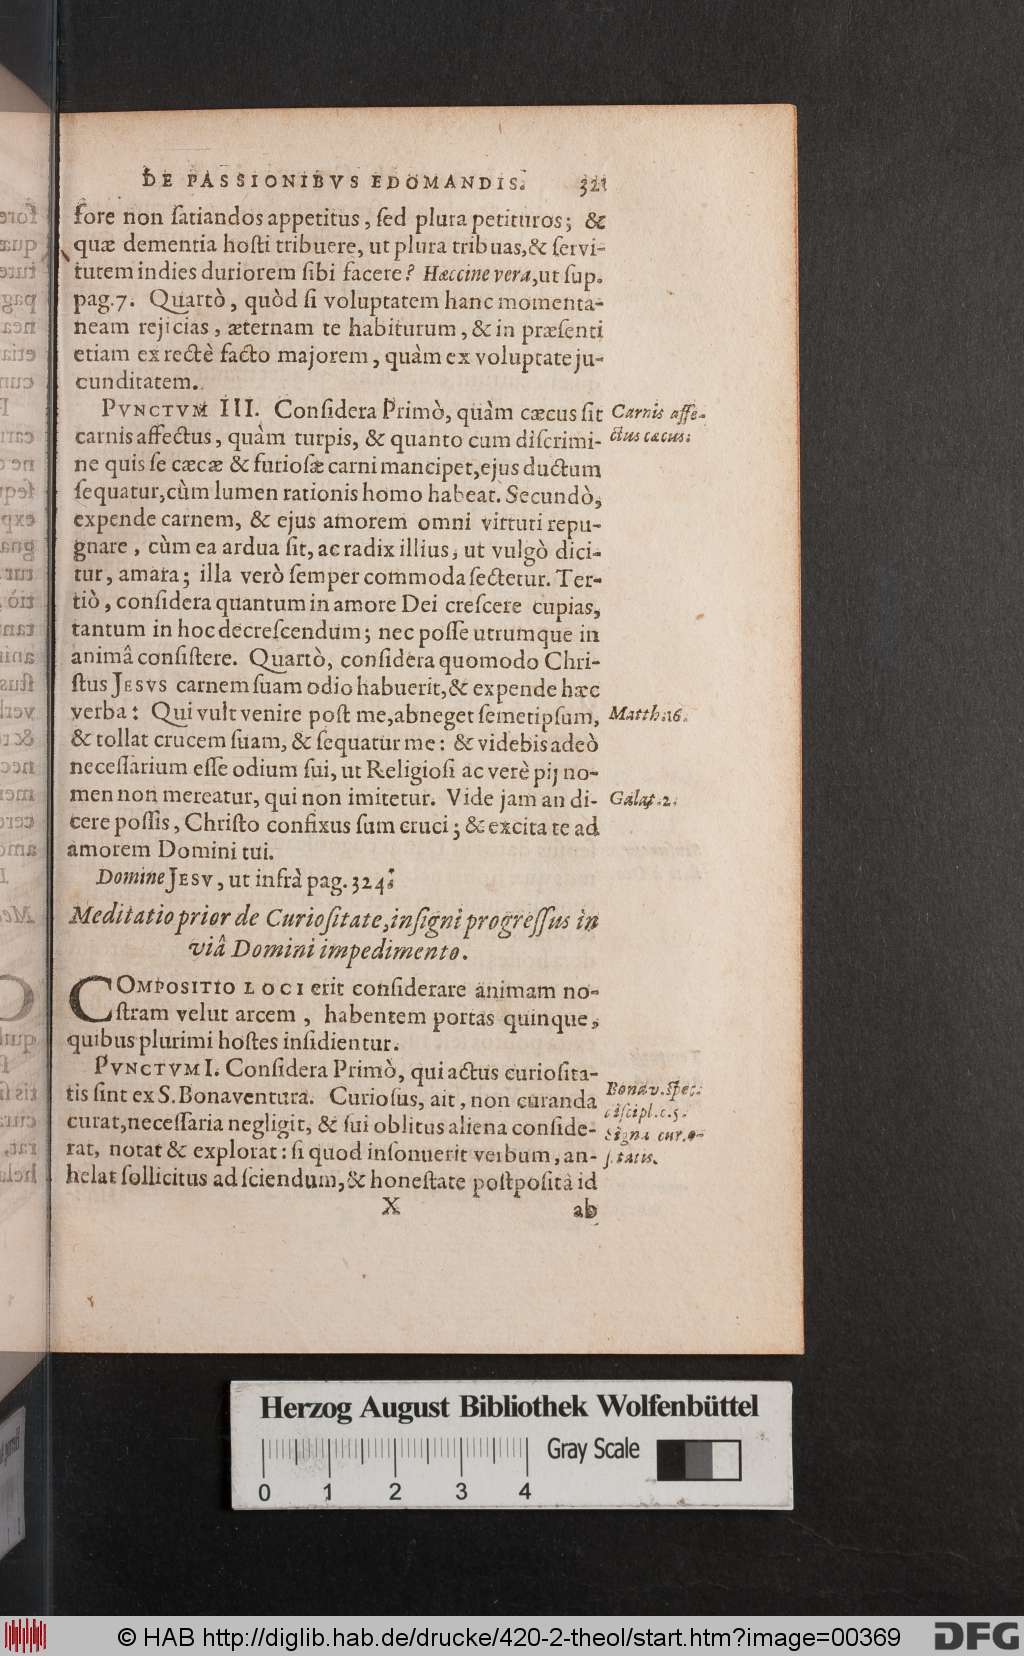 DE PASSIONIBVS EDOMANDIS. 321
fore non ſatiandos appetitus, ſed plura petituros; &
quæ dementia hoſti tribuere, ut plura tribuas, & ſervi-
tutem indies duriorem ſibi facere? Hæccine vera, ut ſup.
pag. 7. Quartò, quòd ſi voluptatem hanc momenta-
neam rejicias, æternam te habiturum, & in præſenti
etiam ex rectè facto majorem, quàm ex voluptate ju-
cunditatem.
PVNCTVM III. Conſidera Primò, quàm cæcus ſit
Carnis affe-
carnis affectus, quàm turpis, & quanto cum diſcrimi-
ctus cæcus.
ne quis ſe cæcæ & furioſæ carni mancipet, ejus ductum
ſequatur, cùm lumen rationis homo habeat. Secundò,
expende carnem, & ejus amorem omni virtuti repu-
gnare, cùm ea ardua ſit, ac radix illius, ut vulgò dici-
tur, amara; illa verò ſemper commoda ſectetur. Ter-
tiò, conſidera quantum in amore Dei creſcere cupias,
tantum in hoc decreſcendum; nec poſſe utrumque in
animâ conſiſtere. Quartò, conſidera quomodo Chri-
ſtus JESVS carnem ſuam odio habuerit, & expende hæc
verba: Qui vult venire poſt me, abneget ſemetipſum,
Matth. 16.
& tollat crucem ſuam, & ſequatur me: & videbis adeò
neceſſarium eſſe odium ſui, ut Religioſi ac verè pij no-
men non mereatur, qui non imitetur. Vide jam an di-
Galat. 2.
cere poſſis, Chriſto confixus ſum cruci; & excita te ad
amorem Domini tui.
Domine JESV, ut infrà pag. 324.
Meditatio prior de Curioſitate, inſigni progreſſus in
viâ Domini impedimento.
COMPOSITIO LOCI erit conſiderare animam no-
ſtram velut arcem, habentem portas quinque,
quibus plurimi hoſtes inſidientur.
PVNCTVM I. Conſidera Primò, qui actus curioſita-
tis ſint ex S. Bonaventura. Curioſus, ait, non curanda
Bonav. Spec.
diſcipl. c. 5.
curat, neceſſaria negligit, & ſui oblitus aliena conſide-
Signa cur. o-
rat, notat & explorat: ſi quod inſonuerit verbum, an-
ſitatis.
helat ſollicitus ad ſciendum, & honeſtate poſtpoſitâ id
X ab
Herzog August Bibliothek Wolfenbüttel
Gray Scale
0 1 2 3 4
© HAB http://diglib.hab.de/drucke/420-2-theol/start.htm?image=00369
DFG